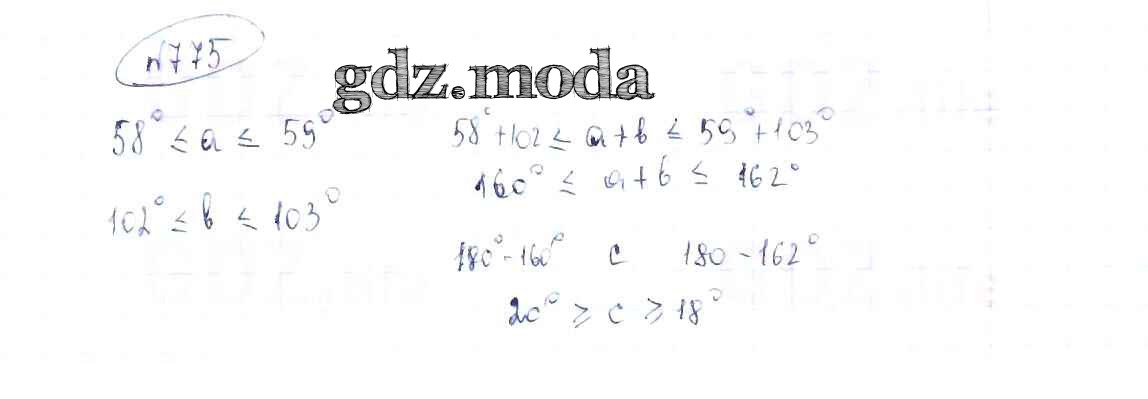 №775
gdz.moda
58° ≤ a ≤ 59°
102° ≤ b ≤ 103°
58°+102 ≤ a+b ≤ 59°+103°
160° ≤ a+b ≤ 162°
180°-160° c 180-162°
20° ≥ c ≥ 18°